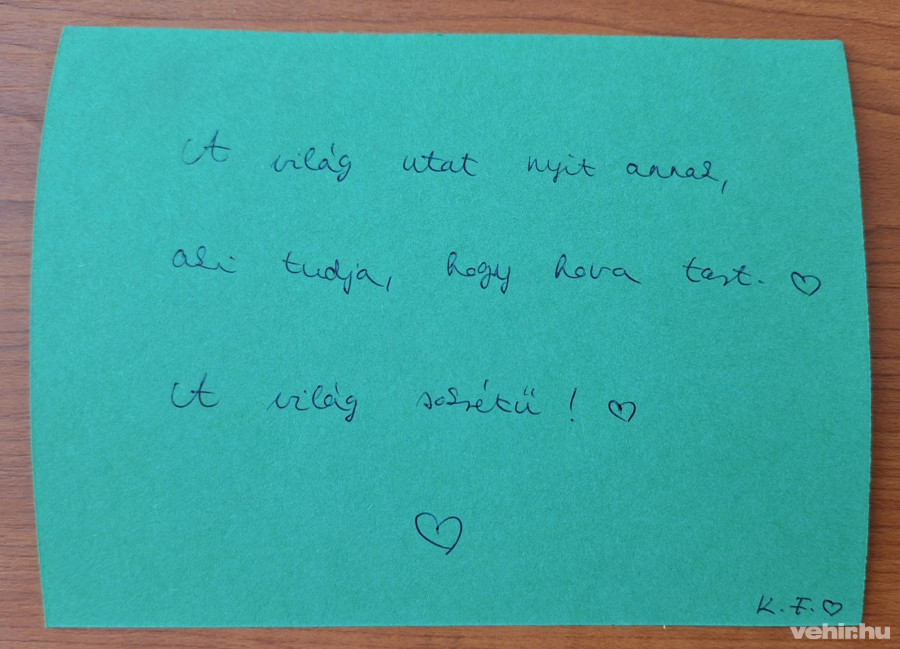 A világ utat nyit annak,
aki tudja, hogy hova tart. ♡
A világ sokrétű! ♡
♡
K. F. ♡
vehir.hu